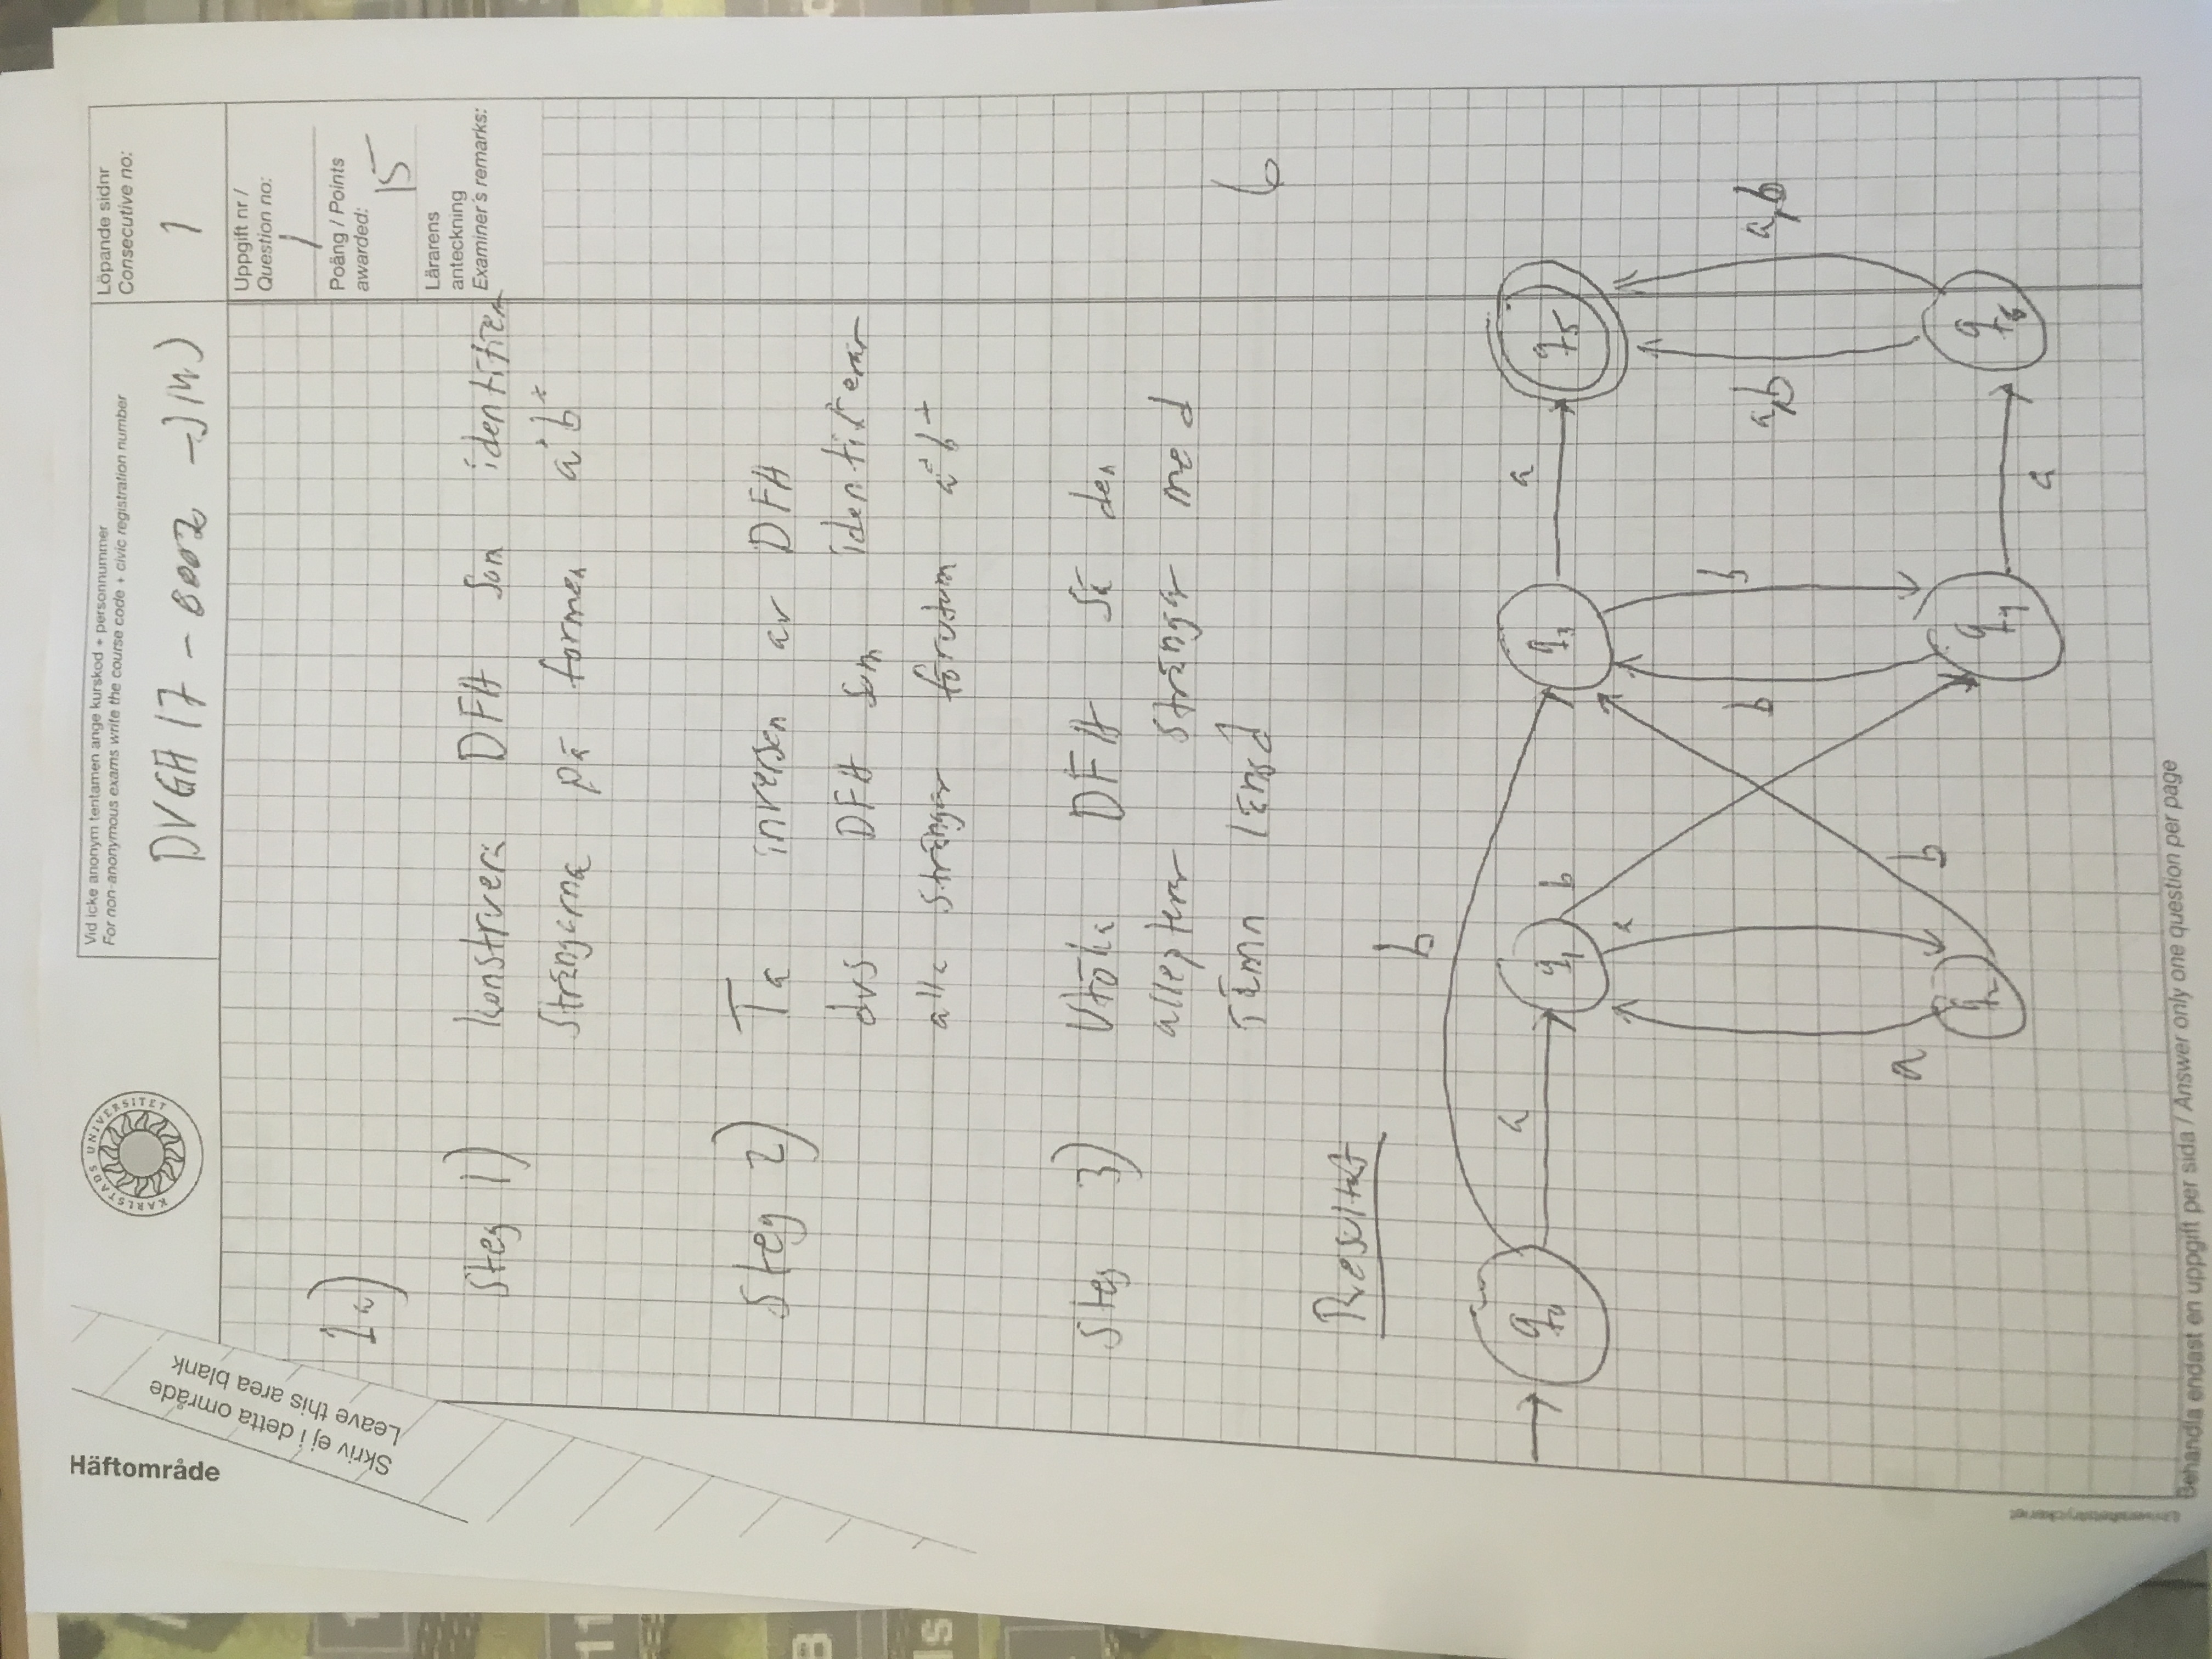 Häftområde
Skriv ej i detta område
Leave this area blank
KARLSTADS UNIVERSITET
Vid icke anonym tentamen ange kurskod + personnummer
For non-anonymous exams write the course code + civic registration number
DVGA17 - 0002
Löpande sidnr
Consecutive no:
1
Uppgift nr /
Question no:
1
Poäng / Points
awarded:
15
Lärarens
anteckning
Examiner's remarks:
1a)
Steg 1) konstruera DFA som identifierar
strängarna på formen a*b*
Steg 2) Ta inversen av DFA
dvs DFA som identifierar
alla strängar förutom a*b*
Steg 3) Utöka DFA så den
accepterar strängar med
jämn längd
6
Resultat
b
q0 a q1 b q3 a q5
a
b b a,b a,b
a b
q2 q4 a q6
Universitetstryckeriet
Behandla endast en uppgift per sida / Answer only one question per page